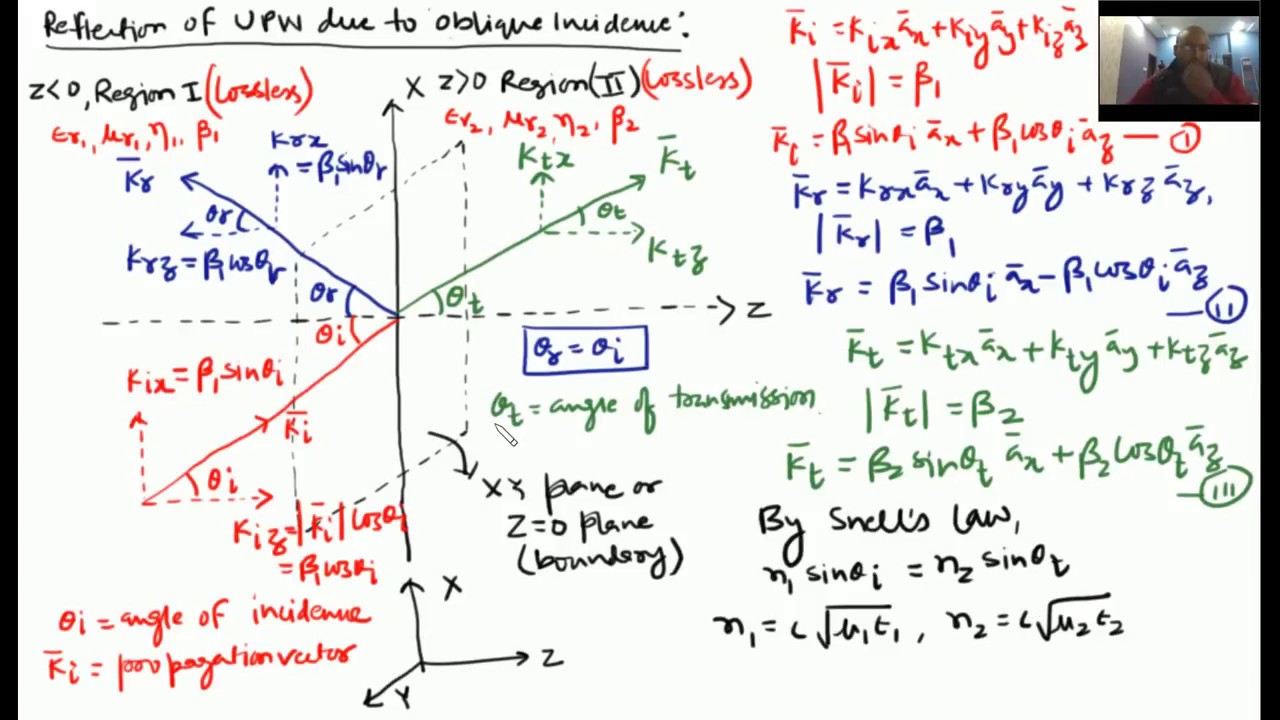 Reflection of UPW due to oblique Incidence:
Z<0, Region I (Lossless)
εr1, μr1, η1, β1
X
Z>0 Region(II) (Lossless)
εr2, μr2, η2, β2
K̄r
Krx
= β1sinθr
θr
Krz = β1cosθr
θr
θi
Ktx
K̄t
θt
Ktz
θt
Z
θr = θi
θt = angle of transmission
Kix = β1sinθi
K̄i
θi
Kiz = |K̄i| cosθi
= β1cosθi
XY plane or
Z=0 plane
(boundary)
θi = angle of incidence
K̄i = propagation vector
X
Z
Y
K̄i = Kix āx + Kiy āy + Kiz āz
|K̄i| = β1
K̄i = β1sinθi āx + β1cosθi āz — (I)
K̄r = Krx āx + Kry āy + Krz āz,
|K̄r| = β1
K̄r = β1 sinθi āx − β1 cosθi āz
— (II)
K̄t = Ktx āx + Kty āy + Ktz āz
|K̄t| = β2
K̄t = β2 sinθt āx + β2 cosθt āz
— (III)
By Snell's Law,
n1 sinθi = n2 sinθt
n1 = c √μ1ε1 , n2 = c √μ2ε2